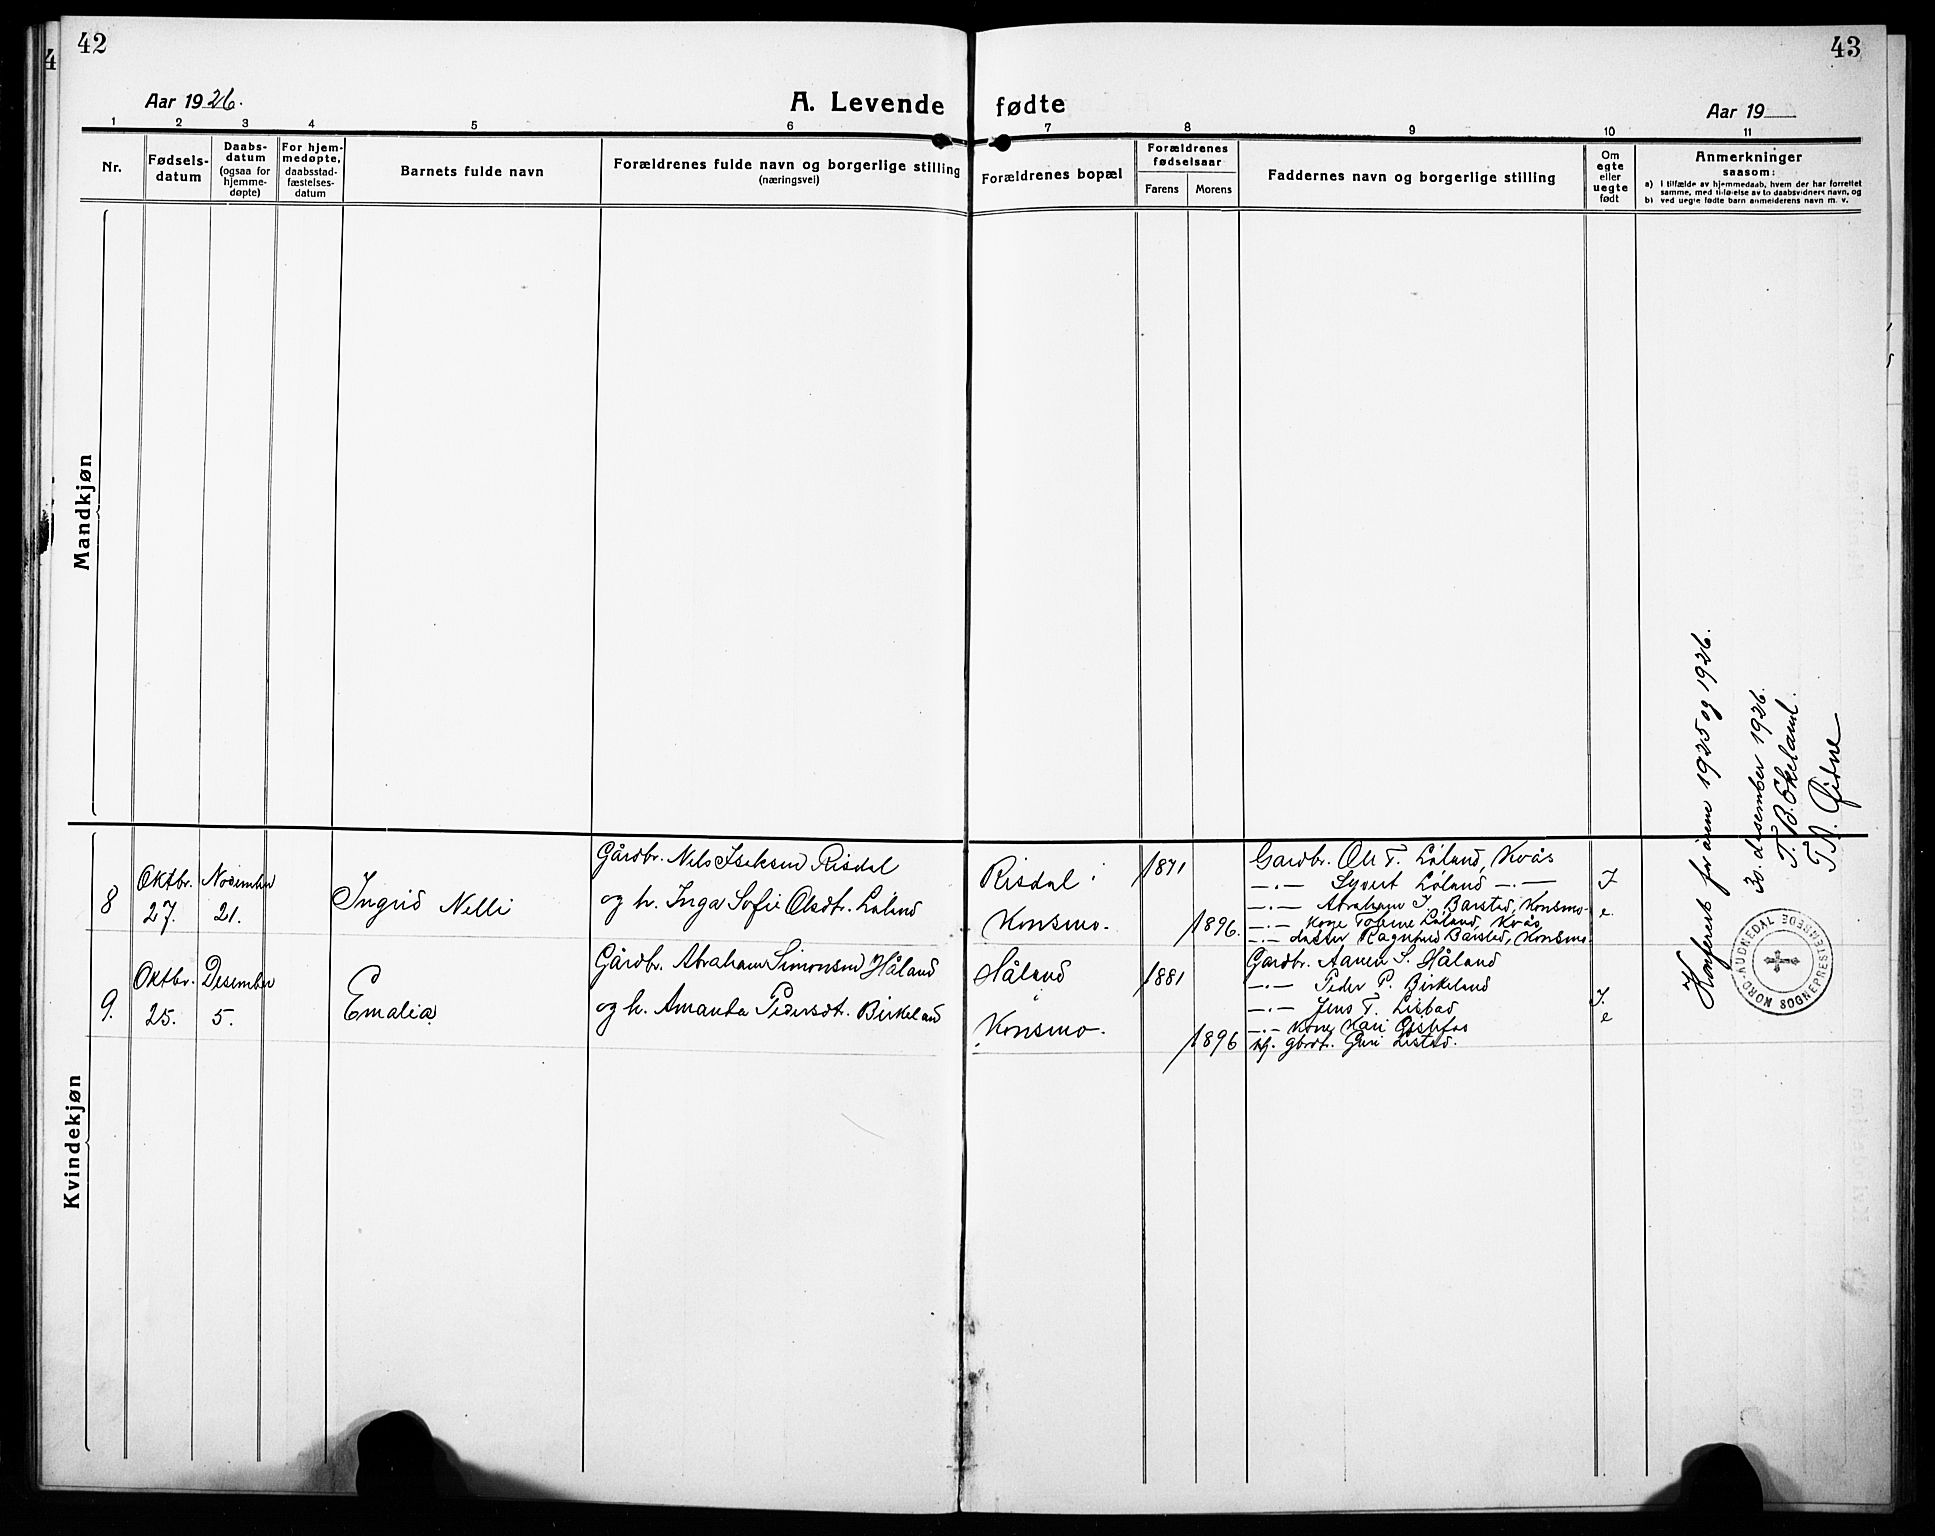 42
43
Aar 1926.
A. Levende fødte
Aar 19
1 2 3 4 5 6 7 8 9 10 11
Nr.
Fødselsdatum
Daabsdatum (ogsaa for hjemmedøpte)
For hjemmedøpte, daabsstadfæstelsesdatum
Barnets fulde navn
Forældrenes fulde navn og borgerlige stilling (næringsvei)
Forældrenes bopæl
Forældrenes fødselsaar
Farens
Morens
Faddernes navn og borgerlige stilling
Om egte eller uegte født
Anmerkninger
saasom:
a) I tilfælde av hjemmedaab, hvem der har forrettet
samme, med tilføielse av to daabsvidners navn, og
b) ved uegte fødte barn anmelderens navn m. v.
Mandkjøn
Kvindekjøn
8
Oktbr. 27.
November 21.
Ingrid Nelli
Gårdbr. Nils Iseksen Risdal
og h. Inga Sofie Olsdt. Løland
Risdal i
Konsmo.
1871
1896.
Gardbr. Ole T. Løland, Kvås
—.— Syvert Løland —.—
—.— Abraham I. Barstad, Konsmo
—.— Kone Tobine Løland, Kvås
—.— datter Ragnhild Barstad, Konsmo
I
e.
9.
Oktbr. 25.
Desember 5.
Emalia
Gårdbr. Abraham Simonsen Håland
og h. Amanda Pedersdt. Birkeland
Håland
i
Konsmo.
1881
1896
Gardbr. Aanen S. Håland
—.— Peder P. Birkeland
—.— Jens T.
—.— Kone Kari
gbrdt. Guri
I.
e
Konferert for årene 1925 og 1926.
30. desember 1926.
T. B. Ekeland.
T. A. Øidne
NORD-AUDNEDAL SOGNEPRESTEMBEDE